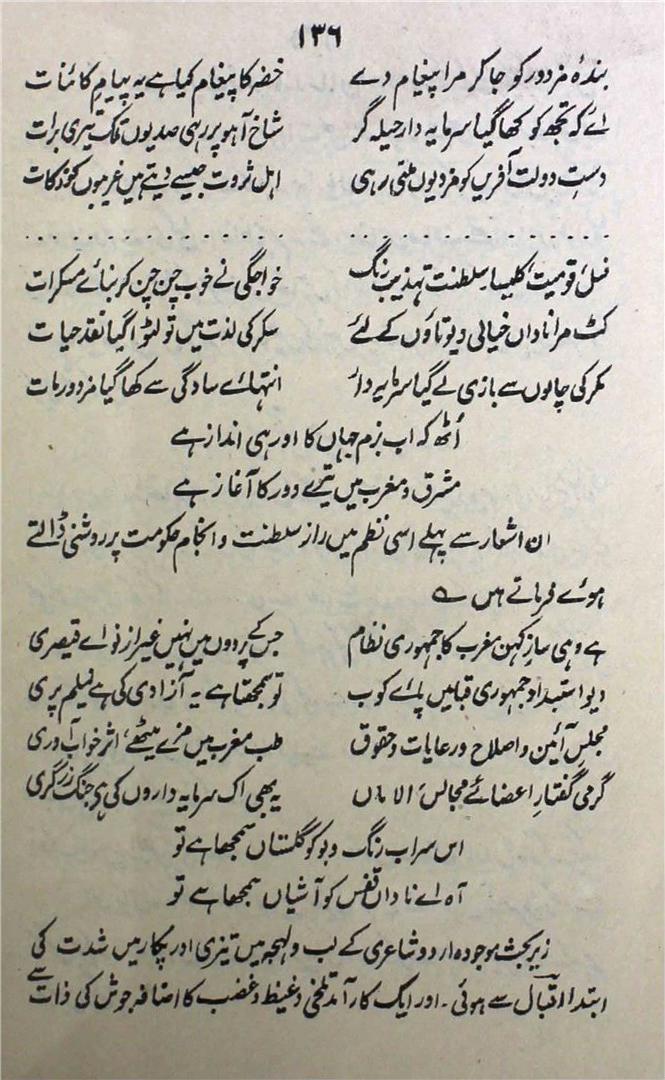 ۱۳۶
بندۂ مزدور کو جا کر مرا پیغام دے خضر کا پیغام کیا ہے یہ پیامِ کائنات
اے کہ تجھ کو کھا گیا سرمایہ دارِ حیلہ گر شاخِ آہو پر رہی صدیوں تلک تیری برات
دستِ دولت آفریں کو مزدیوں ملتی رہی اہل ثروت جیسے دیتے ہیں غریبوں کو زکات
. . . . . . . . . . . . . . . . . . . . . . . . . . . .
نسل، قومیت، کلیسا، سلطنت، تہذیب، رنگ خواجگی نے خوب چن چن کر بنائے مسکرات
کٹ مرا ناداں خیالی دیوتاؤں کے لئے سکر کی لذت میں تو لٹوا گیا نقد حیات
مکر کی چالوں سے بازی لے گیا سرمایہ دار انتہائے سادگی سے کھا گیا مزدور مات
اُٹھ کہ اب بزم جہاں کا اور ہی انداز ہے
مشرق و مغرب میں تیرے دور کا آغاز ہے
ان اشعار سے پہلے اسی نظم میں راز سلطنت و انجام حکومت پر روشنی ڈالتے
ہوئے فرماتے ہیں ؎
ہے وہی سازِ کہن مغرب کا جمہوری نظام جس کے پردوں میں نہیں غیر از نوائے قیصری
دیو استبداد جمہوری قبا میں پائے کوب تو سمجھتا ہے یہ آزادی کی ہے نیلم پری
مجلسِ آئین و اصلاح و رعایات و حقوق طب مغرب میں مزے میٹھے، اثر خواب آوری
گرمی گفتارِ اعضائے مجالس، الاماں یہ بھی اک سرمایہ داروں کی ہے جنگ زرگری
اس سراب رنگ و بو کو گلستاں سمجھا ہے تو
آہ اے ناداں قفس کو آشیاں سمجھا ہے تو
زیر بحث موجودہ اردو شاعری کے لب و لہجہ میں تیزی اور پکار میں شدت کی
ابتدا اقبال سے ہوئی۔ اور ایک کارآمد تلخی و غیظ و غضب کا اضافہ جوش کی ذات سے